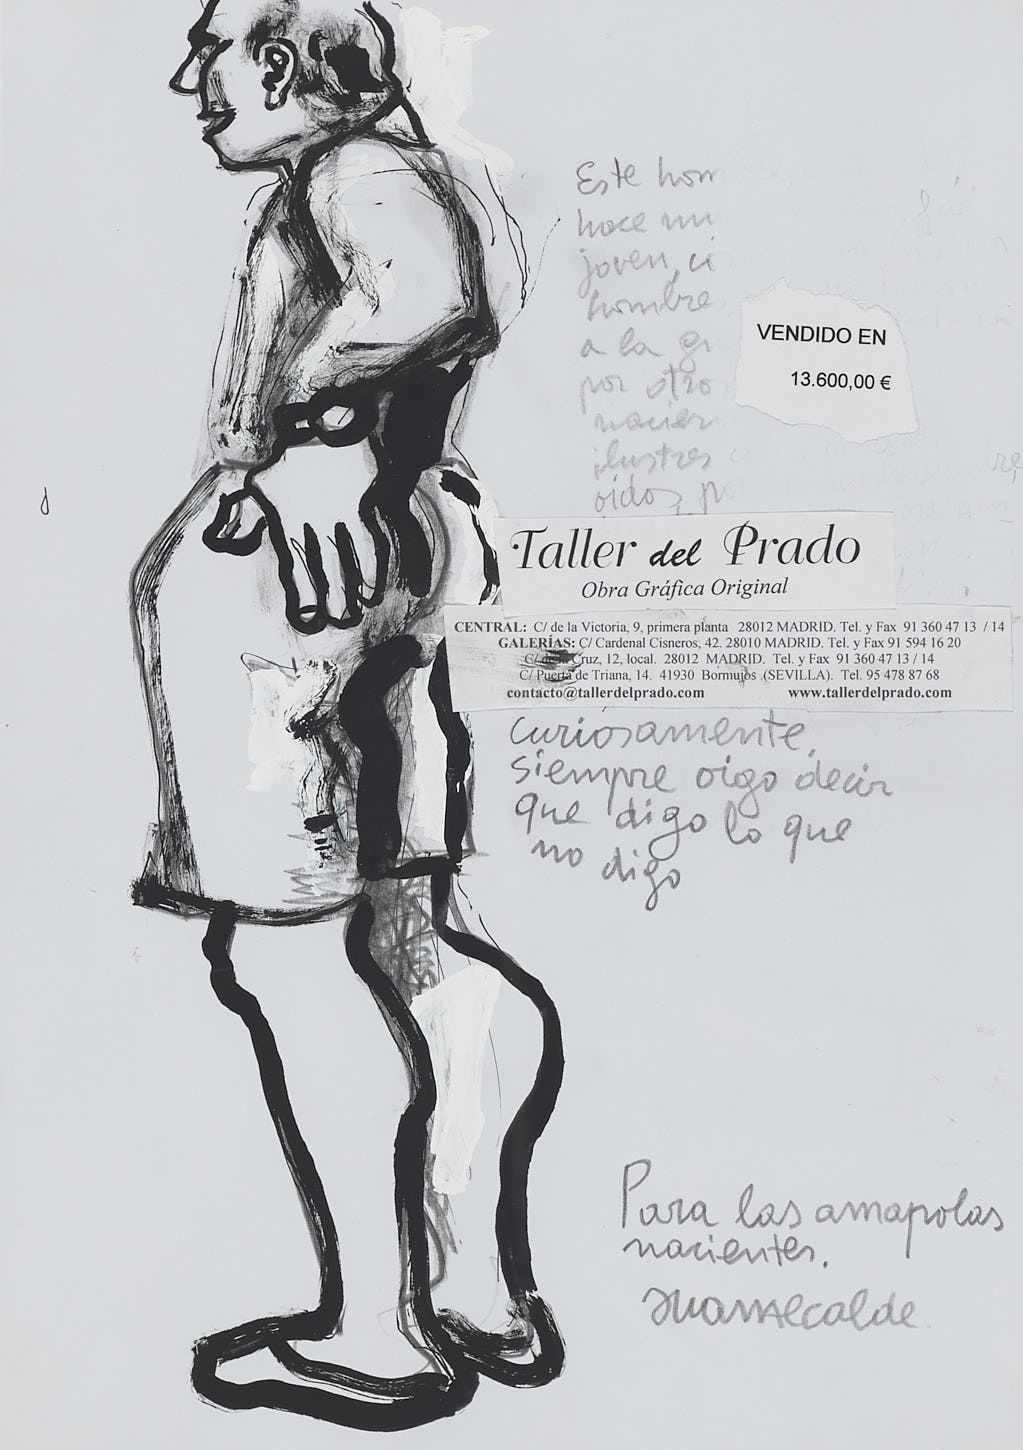 Este hom
hace mu
joven, ci
hombre
a la gu
por otro
nacier
ilustres
oidos, po
VENDIDO EN
13.600,00 €
Taller del Prado
Obra Gráfica Original
CENTRAL: C/ de la Victoria, 9, primera planta 28012 MADRID. Tel. y Fax 91 360 47 13 / 14
GALERÍAS: C/ Cardenal Cisneros, 42. 28010 MADRID. Tel. y Fax 91 594 16 20
C/ de la Cruz, 12, local. 28012 MADRID. Tel. y Fax 91 360 47 13 / 14
C/ Puerta de Triana, 14. 41930 Bormujos (SEVILLA). Tel. 95 478 87 68
contacto@tallerdelprado.com www.tallerdelprado.com
Curiosamente,
siempre oigo decir
que digo lo que
no digo
Para las amapolas
nacientes.
Juan Alcalde